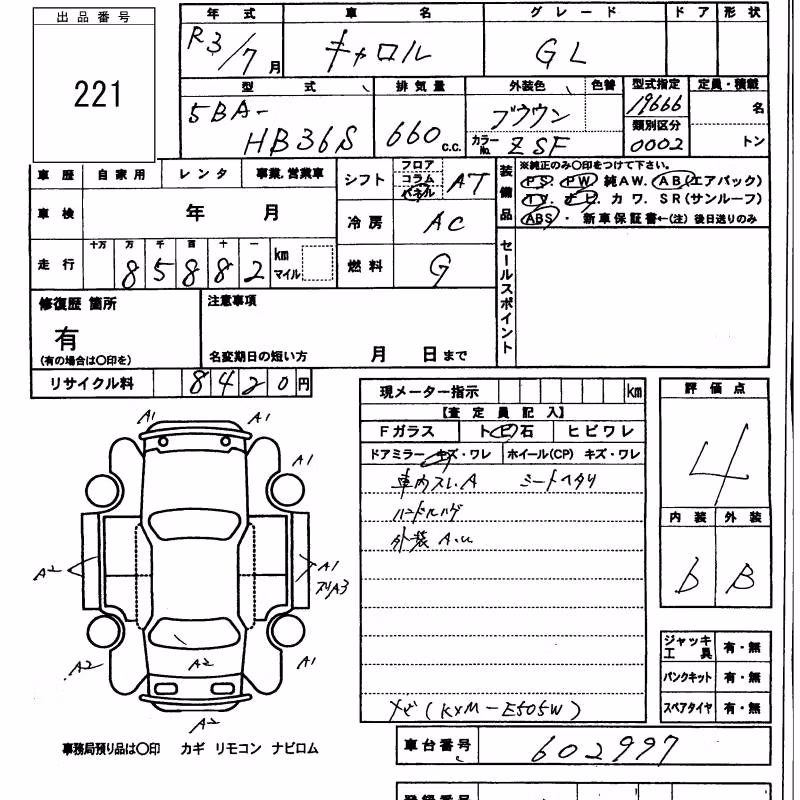 出品番号
221
年式 車名 グレード ドア 形状
R3/7月 キャロル GL
型式 排気量 外装色 色替 型式指定 定員・積載
5BA-HB36S 660 C.C. ブラウン 19666 名
カラーNo. ZSF 類別区分 0002 トン
車歴 自家用 レンタ 事業.営業車
シフト フロア コラム パネル AT
装備品 ※純正のみ〇印をつけて下さい。
PS. PW 純AW. AB(エアバック)
TV. ナビ. カワ. SR(サンルーフ)
ABS・ 新車保証書←(注) 後日送りのみ
車検 年 月
冷房 AC
走行 十万 万 千 百 十 一 km マイル
8 5 8 8 2
燃料 G
セールスポイント
修復歴 箇所
有
(有の場合は〇印を)
注意事項
名変期日の短い方 月 日まで
リサイクル料 8420円
現メーター指示 km
【査定員記入】
Fガラス ト ビ 石 ヒビワレ
ドアミラー キズ・ワレ ホイール(CP) キズ・ワレ
車内スレ.A シートヘタリ
ハンドルハゲ
外装 A.u
ナビ (KXM-E505W)
評価点
4
内装 外装
b B
ジャッキ 工具 有・無
パンクキット 有・無
スペアタイヤ 有・無
A1 A1
A1
A2
A1
A3
A2 A2 A1
A2
事務局預り品は〇印 カギ リモコン ナビロム
車台番号 602997
登録番号